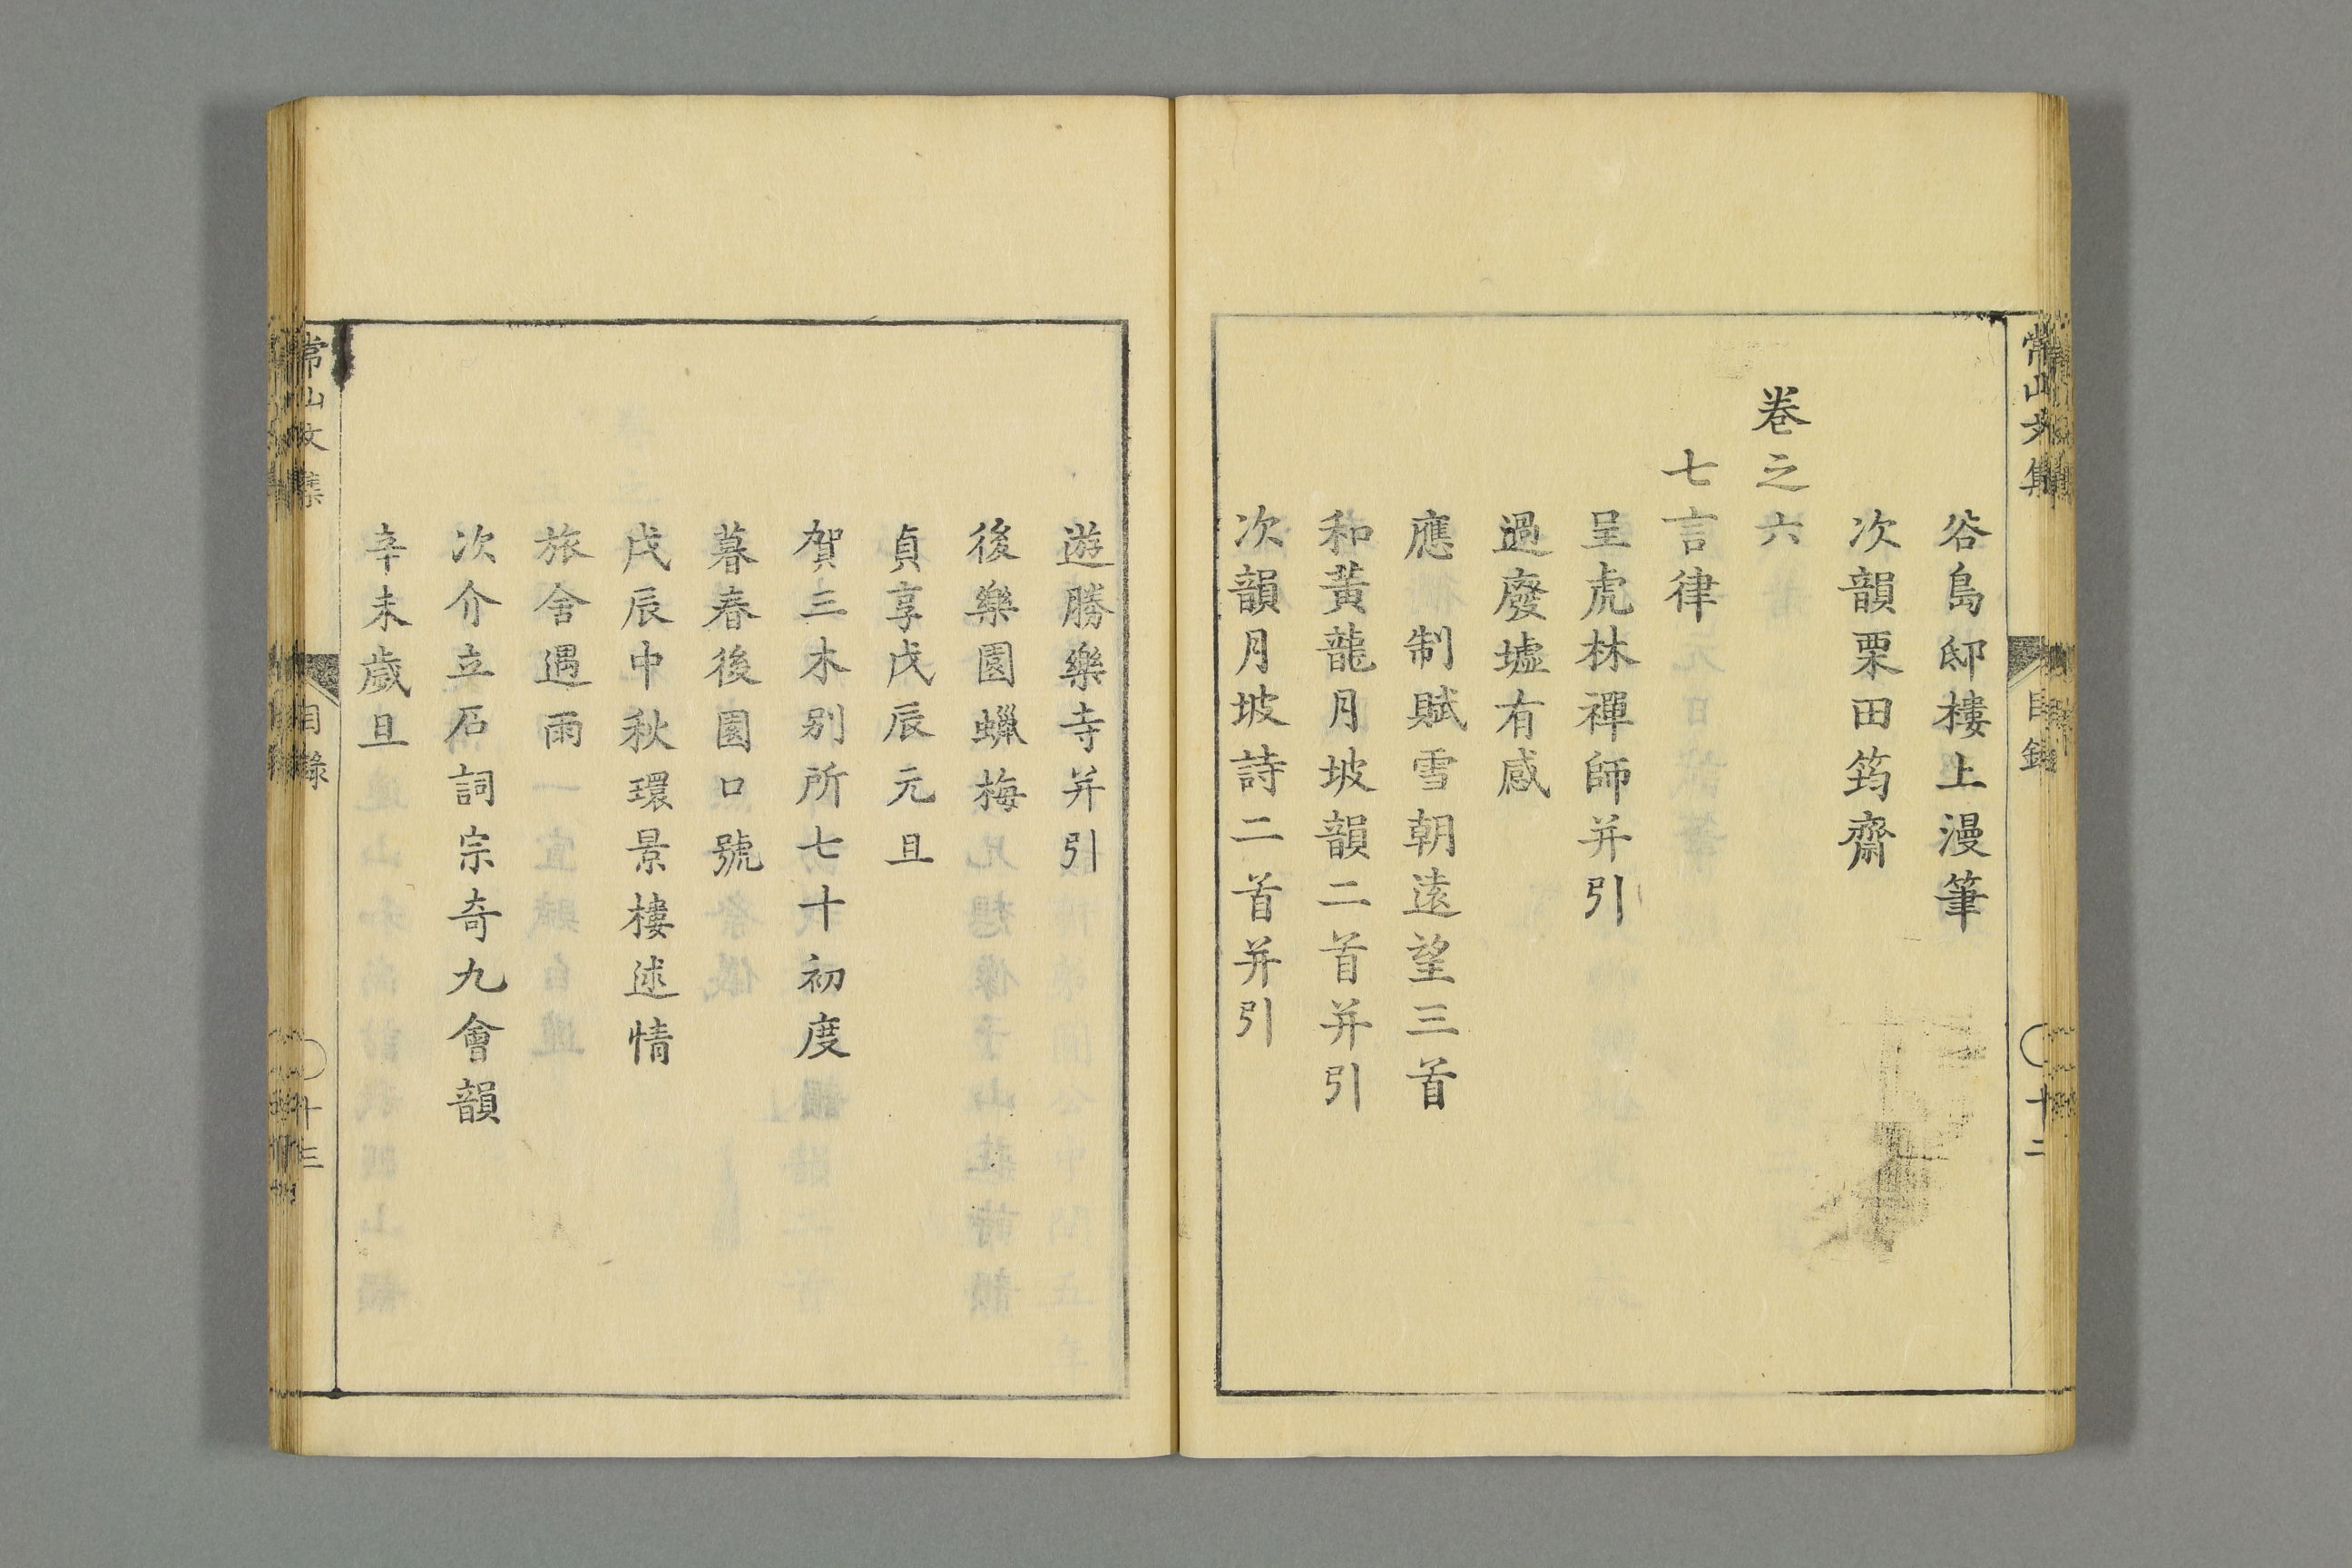 常山文集
目錄
十二
谷島邸樓上漫筆
次韻栗田筠齋
卷之六
七言律
呈虎林禪師并引
過廢墟有感
應 制賦雪朝遠望三首
和黃龍月坡韻二首并引
次韻月坡詩二首并引
遊勝樂寺并引
後樂園蠟梅
貞享戊辰元旦
賀三木別所七十初度
暮春後園口號
戊辰中秋環景樓述情
旅舍遇雨
次介立石詞宗奇九會韻
辛未歲旦
常山文集
目錄
十三